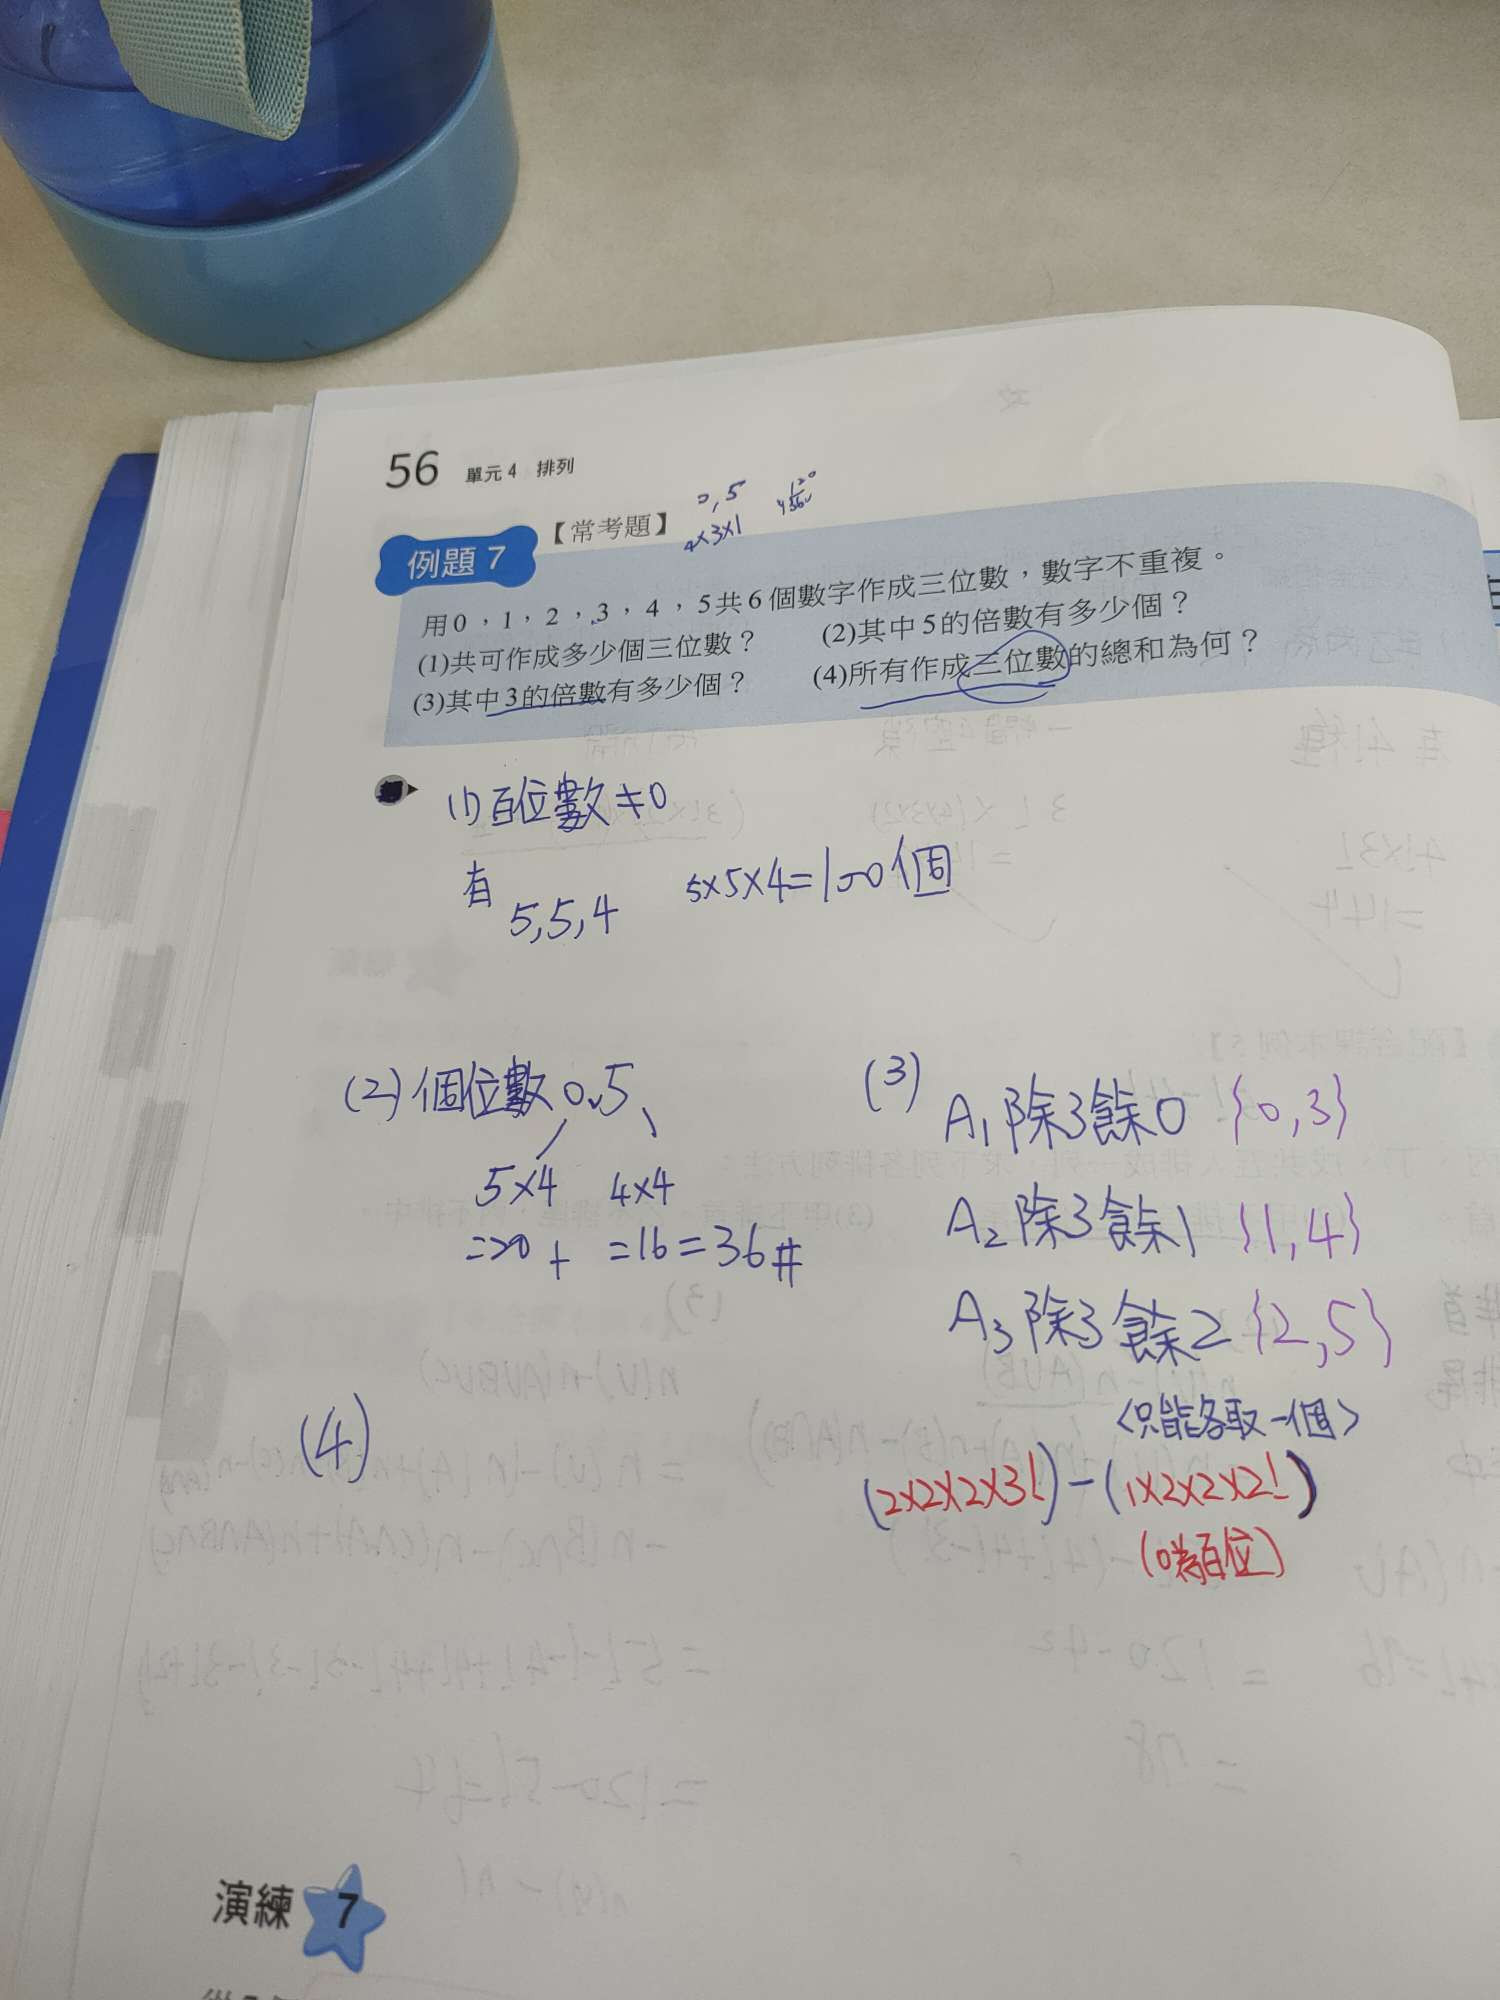 56 單元4 排列
0,5
4×3×1
例題 7 【常考題】
用0,1,2,3,4,5共6個數字作成三位數,數字不重複。
(1)共可作成多少個三位數? (2)其中5的倍數有多少個?
(3)其中3的倍數有多少個? (4)所有作成三位數的總和為何?
(1) 百位數≠0
有 5,5,4 5×5×4=100個
(2) 個位數0、5
5×4 4×4
=20 + =16=36#
(3)
A1 除3餘0 {0,3}
A2 除3餘1 {1,4}
A3 除3餘2 {2,5}
<只能各取一個>
(2×2×2×3!)-(1×2×2×2!)
(0為百位)
(4)
演練 7